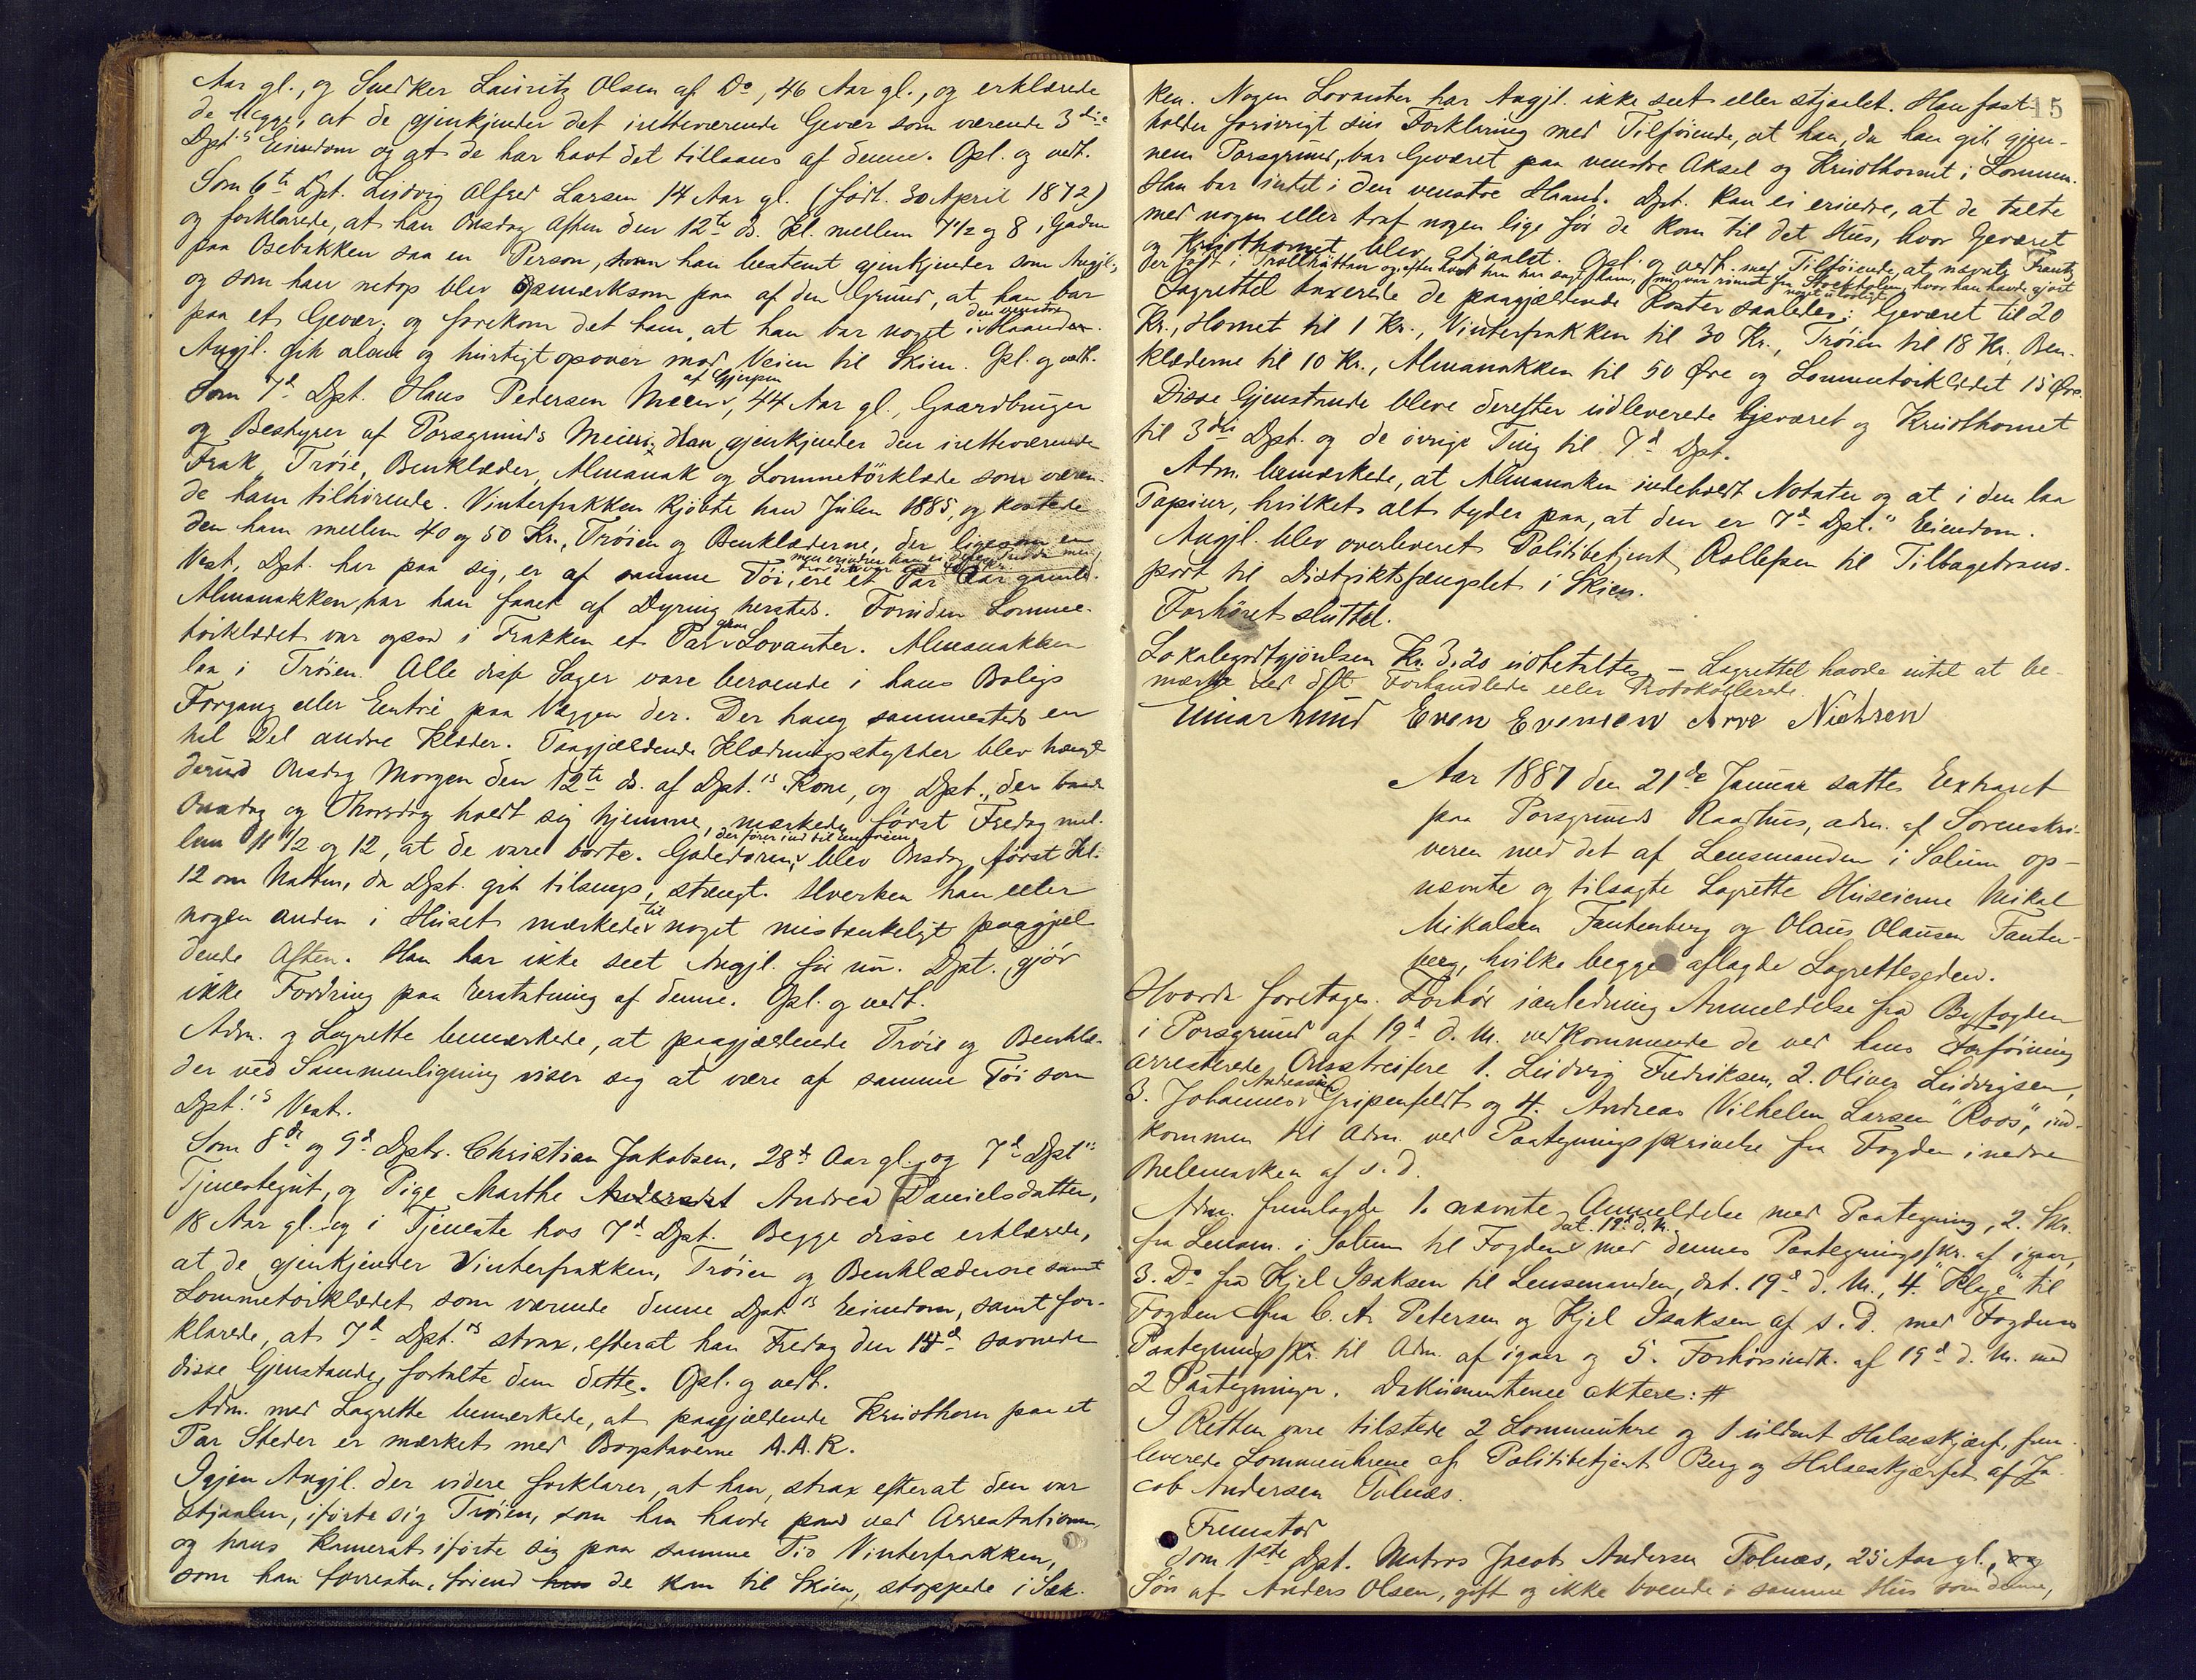 Aar gl., og Snedker Lauritz Olsen af Do, 46 Aar gl., og erklærede
de begge, at de gjenkjender det iretteværende Gevær som værende 3die
Dpt.s Eiendom og at de har havt det tillaans af denne. Opl. og vedt.
Som 6te Dpt. Ludvig Alfred Larsen 14 Aar gl. (født 30 April 1872)
og forklarede, at han Onsdag Aften den 12te ds. Kl. mellem 7 1/2 og 8 i Gaden
paa Osebakken saa en Person, som han bestemt gjenkjender som Angjl.,
og som han netop blev opmærksom paa af den Grund, at han bar
paa et Gevær; og forekom det ham, at han bar noget i den venstre Haand.
Angjl. gik alene og hurtigt opover mod Veien til Skien. Opl. og vedt.
Som 7d Dpt. Hans Pedersen Meen af Gjerpen, 44 Aar gl., Gaardbruger
og Bestyrer af Porsgrunds Meieri. Han gjenkjender den iretteværende
Frak, Trøie, Benklæder, Almanak og Lommetørklæde som væren-
de ham tilhørende. Vinterfrakken kjøbte han Julen 1885, og kostede
den ham mellem 40 og 50 Kr., Trøien og Benklæderne, der ligesom en
Vest, Dpt. har paa sig, er af samme Tøi, ere et Par Aar gamle.
Almanakken har han faaet af Dyring hersteds. Foruden Lomme-
tørklædet var ogsaa i Frakken et Par graa Lovanter. Almanakken
laa i Trøien. Alle disse Sager vare beroende i hans Boligs
Forgang eller Entré paa Væggen der. Der hang sammesteds en
hel Del andre Klæder. Paagjældende Klædningsstykker blev hængt
derud Onsdag Morgen den 12te ds. af Dpt.s Kone, og Dpt., der baade
Onsdag og Thorsdag holdt sig hjemme, mærkede først Fredag mel-
lem 11 1/2 og 12, at de vare borte. Gadedøren, der fører ind til Entréen, blev Onsdag først Kl.
12 om Natten, da Dpt. gik tilsengs, stængt. Hverken han eller
nogen anden i Huset mærkede til noget mistænkeligt paagjæl-
dende Aften. Han har ikke seet Angjl. før nu. Dpt. gjør
ikke Fordring paa Erstatning af denne. Opl. og vedt.
Adm. og Lagrette bemærkede, at paagjældende Trøie og Benklæ-
der ved Sammenligning viser sig at være af samme Tøi som
Dpt.s Vest.
Som 8de og 9d Dptr. Christian Jakobsen, 28d Aar gl., og 7d Dpts
Tjenestegut, og Pige Marthe Andrea Danielsdatter,
18 Aar gl. og i Tjeneste hos 7d Dpt. Begge disse erklærede,
at de gjenkjender Vinterfrakken, Trøien og Benklæderne samt
Lommetørklædet som værende denne Dpt.s Eiendom, samt for-
klarede, at 7d Dpt.s strax, efterat han Fredag den 14d savnede
disse Gjenstande, fortalte dem dette. Opl. og vedt.
Adm. med Lagrette bemærkede, at paagjældende Krudthorn paa et
Par Steder er mærket med Bogstaverne A.A.R.
Igjen Angjl. der videre forklarer, at han, strax efterat den var
stjaalen, iførte sig Trøien, som han havde paa ved Arrestationen,
og hans Kamerat iførte sig paa samme Tid Vinterfrakken,
som han forresten, førend de kom til Skien, stoppede i Sæk-
15
ken. Nogen Lovanter har Angjl. ikke seet eller stjaalet. Han fast-
holder forøvrigt sin Forklaring med Tilføiende, at han, da han gik gjen-
nem Porsgrund, bar Geværet paa venstre Aksel og Krudthornet i Lommen.
Han bar intet i den venstre Haand. Dpt. kan ei erindre, at de talte
med nogen eller traf nogen lige før de kom til det Hus, hvor Geværet
og Krudthornet blev stjaalet. Opl. og vedt. med Tilføiende, at nævnte Frantz
er født i Trollhättan og efter hvad han har sagt ham, som var rømt fra Stockholm, hvor han havde gjort
noget ulovligt.
Lagrettet taxerede de paagjældende Koster saaledes: Geværet til 20
Kr., Hornet til 1 Kr., Vinterfrakken til 30 Kr., Trøien til 18 Kr., Ben-
klæderne til 10 Kr., Almanakken til 50 Øre og Lommetørklædet 15 Øre.
Disse Gjenstande bleve derefter udleverede Geværet og Krudthornet
til 3die Dpt. og de øvrige Ting til 7d Dpt.
Adm. bemærkede, at Almanaken indeholdt Notater og at i den laa
Papirer, hvilket alt tyder paa, at den er 7d Dpt.s Eiendom.
Angjl. blev overleveret Politibetjent Rollefsen til Tilbagetrans-
port til Distriktsfængslet i Skien.
Forhøret sluttet.
Lokalegodtgjørelsen Kr. 3,20 udbetaltes. – Lagrettet havde intet at be-
mærke ved det Forhandlede eller Protokollerede.
Einar Lund Even Evensen Arve Nielsen
Aar 1887 den 21de Januar sattes Extraret
paa Porsgrunds Raadhus, adm. af Sorenskri-
veren med det af Lensmanden i Solum op-
nævnte og tilsagte Lagrette Huseierne Mikal
Mikalsen Fantenberg og Olaus Olausen Fanten-
berg, hvilke begge aflagde Lagretteseden.
Hvorda foretages Forhør ianledning Anmeldelse fra Byfogden
i Porsgrund af 19d d. M. vedkommende de ved hans Forføining
arresterede Omstreifere 1. Ludvig Fredriksen, 2. Oliver Ludvigsen,
3. Johannes Andreassen Gripenfeldt og 4. Andreas Vilhelm Larsen "Roos", ind-
kommen til Adm. ved Paategningsskrivelse fra Fogden i nedre
Thelemarken af s. D.
Adm. fremlagde 1. nævnte Anmeldelse med Paategning, 2. Skr.
fra Lensm. i Solum til Fogden dat. 19d d. M. med dennes Paategningsskr. af igaar,
3. Do fra Kjel Isaksen til Lensmanden, dat. 19d d. M., 4. "Klage" til
Fogden fra C. A. Petersen og Kjel Isaksen af s. D. med Fogdens
Paategningsskr. til Adm. af igaar og 5. Forhørsindk. af 19d d. M. med
2 Paategninger. Dokumenterne akteres: #
I Retten vare tilstede 2 Lommeuhre og 1 uldent Halsskjærf, frem-
leverede Lommeuhrene af Politibetjent Berg og Halsskjærfet af Ja-
cob Andersen Tolnæs.
Fremstod
Som 1ste Dpt. Matros Jacob Andersen Tolnæs, 25 Aar gl.,
Søn af Anders Olsen, gift og ikke boende i samme Hus som denne,